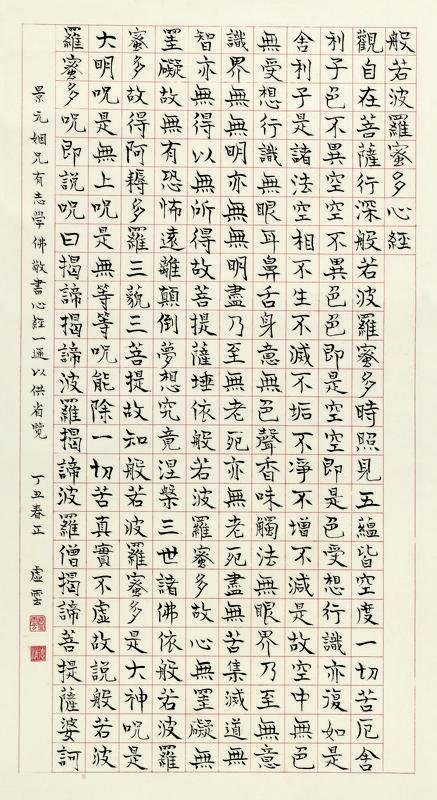 般若波羅蜜多心經
觀自在菩薩行深般若波羅蜜多時照見五蘊皆空度一切苦厄舍
利子色不異空空不異色色即是空空即是色受想行識亦復如是
舍利子是諸法空相不生不滅不垢不淨不增不減是故空中無色
無受想行識無眼耳鼻舌身意無色聲香味觸法無眼界乃至無意
識界無無明亦無無明盡乃至無老死亦無老死盡無苦集滅道無
智亦無得以無所得故菩提薩埵依般若波羅蜜多故心無罣礙無
罣礙故無有恐怖遠離顛倒夢想究竟涅槃三世諸佛依般若波羅
蜜多故得阿耨多羅三藐三菩提故知般若波羅蜜多是大神呪是
大明呪是無上呪是無等等呪能除一切苦真實不虛故說般若波
羅蜜多呪即說呪曰揭諦揭諦波羅揭諦波羅僧揭諦菩提薩婆訶
景元姻兄有志學佛敬書心經一通以供省覽 丁丑春正 虛雲